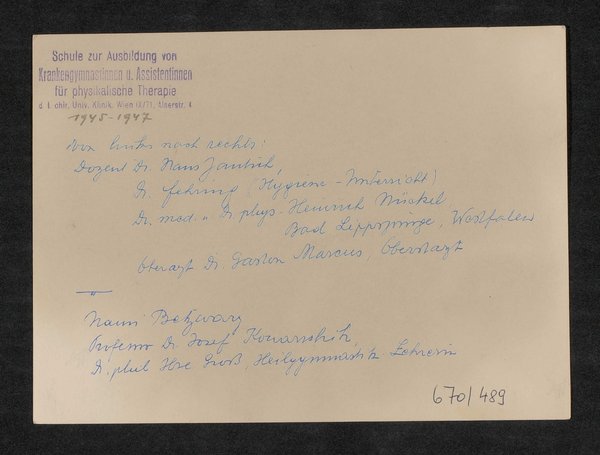 Schule zur Ausbildung von
Krankengymnastinnen u. Assistentinnen
für physikalische Therapie
d. I. chir. Univ. Klinik, Wien IX/71, Alserstr. 4
1945-1947
Von links nach rechts:
Dozent Dr. Hans Jantsch,
Dr. Fehring (Hygiene-Unterricht)
Dr. med. u. Dr. phys. Heinrich Nückel,
Bad Lippspringe, Westfalen
Oberarzt Dr. Gaston Marcus, Oberstarzt
— " —
Nanni Betzwarz
Professor Dr. Josef Kowarschik,
Dr. phil Ilse Groß, Heilgymnastik Lehrerin
670/489